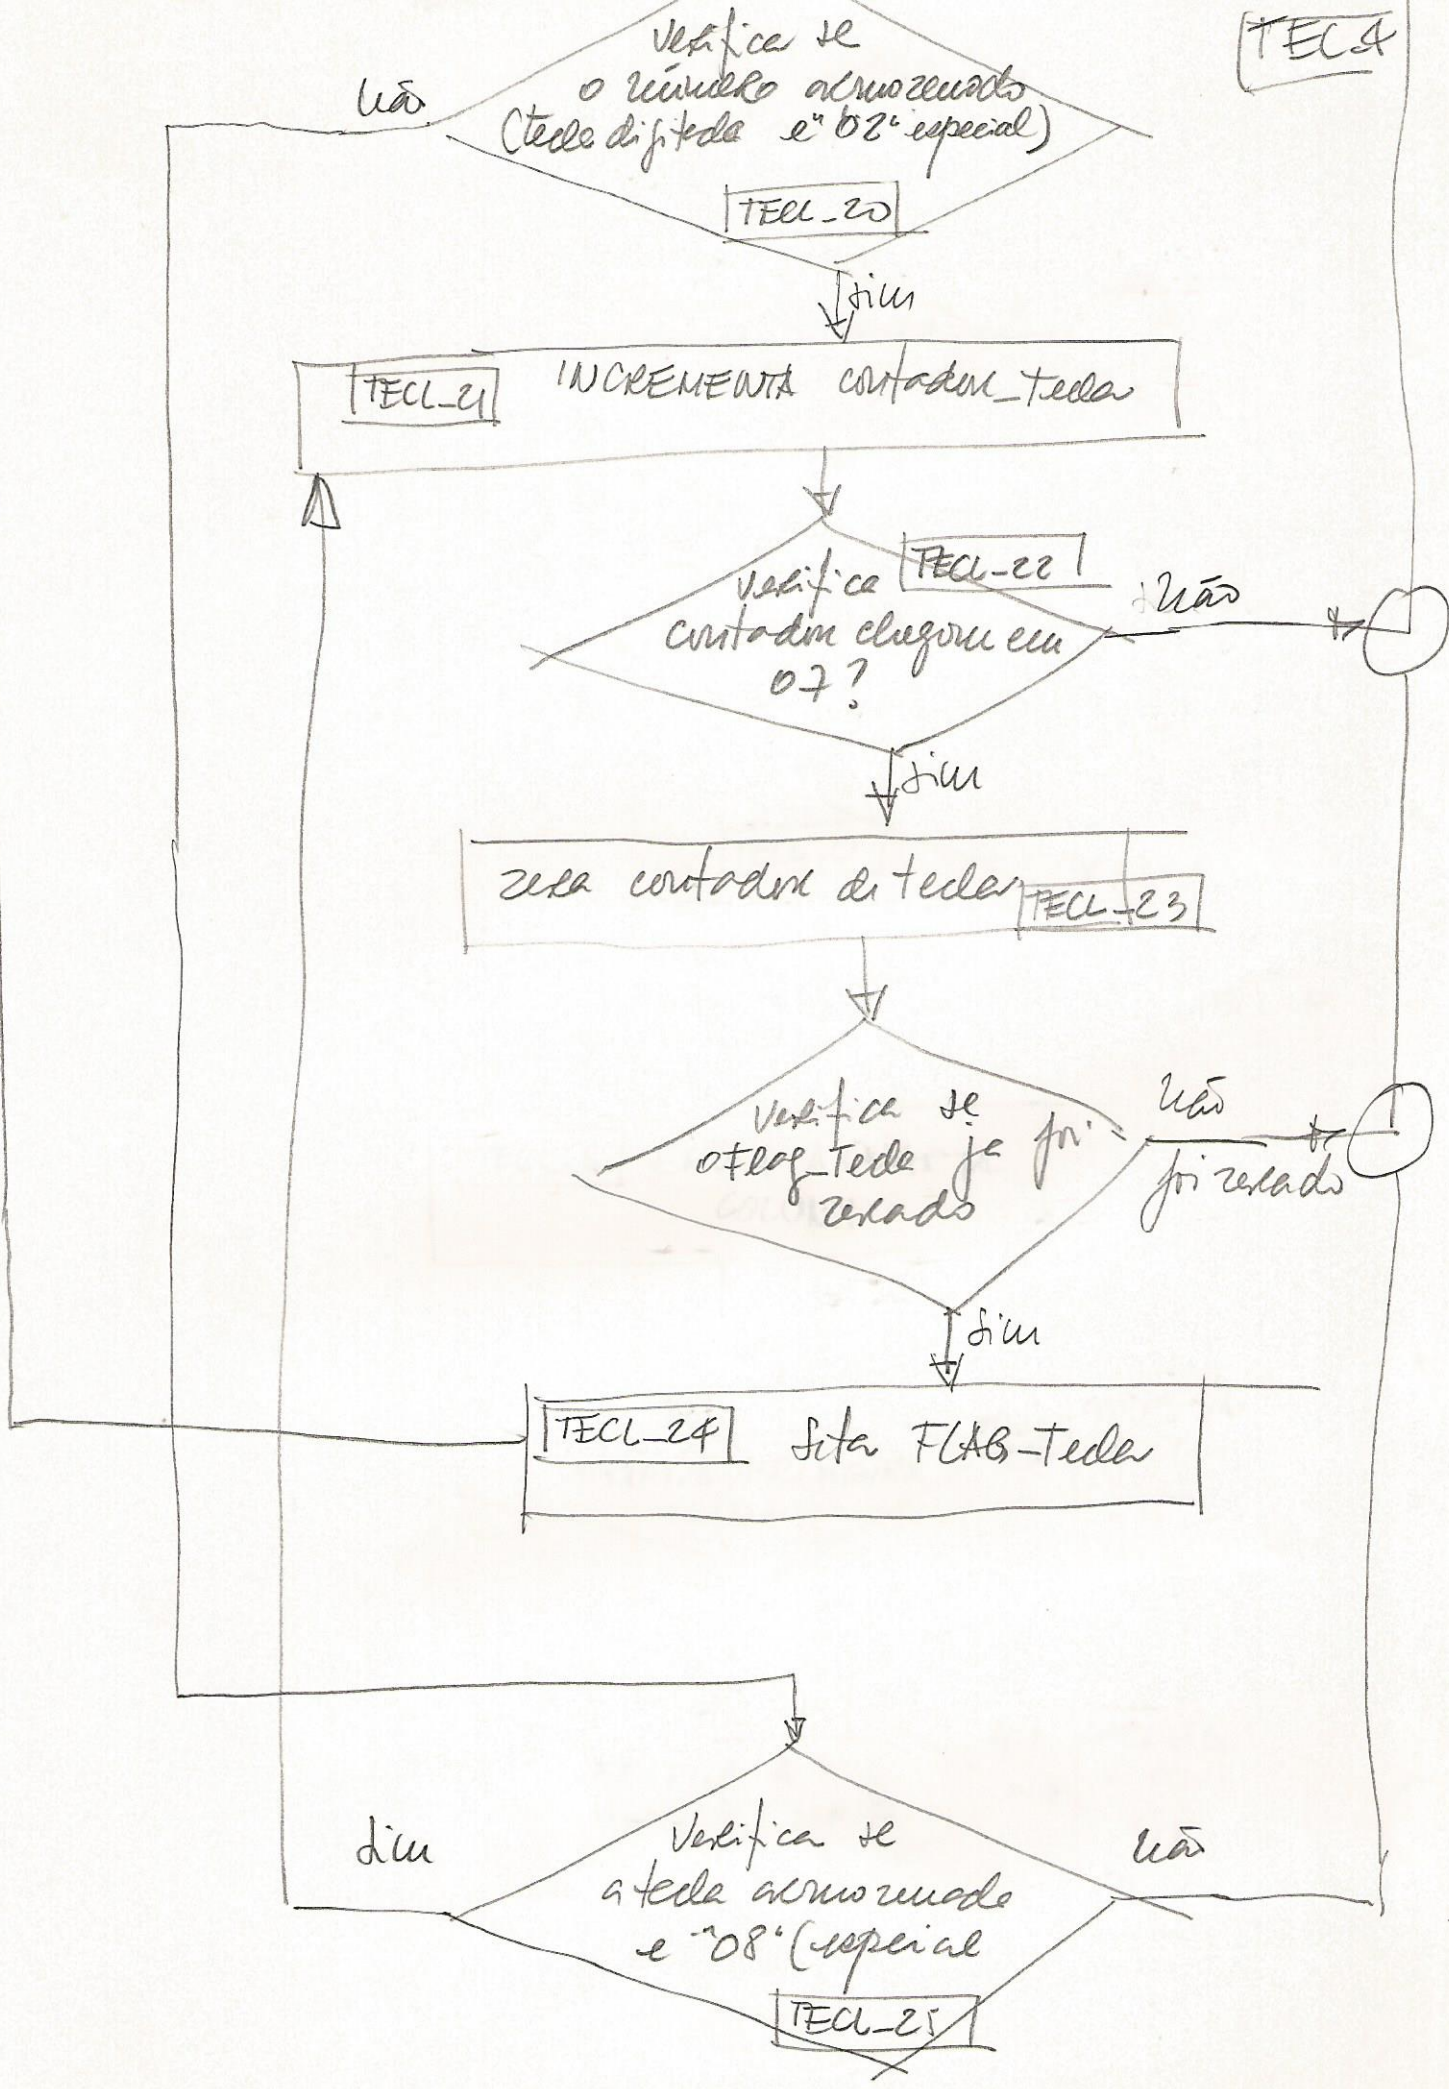 TEC4
Verifica se
não
o número armazenado
(tecla digitada e "02" especial)
TECL_20
sim
TECL_21 INCREMENTA contador_Tecla
TECL_22
Verifica
não
contador chegou em
07?
sim
zera contador de tecla
TECL_23
Verifica se
não
o Flag_Tecla ja foi
foi zerado
zerado
sim
TECL_24 Seta FLAG_Tecla
Verifica se
sim
não
a tecla armazenada
e "08" (especial
TECL_25